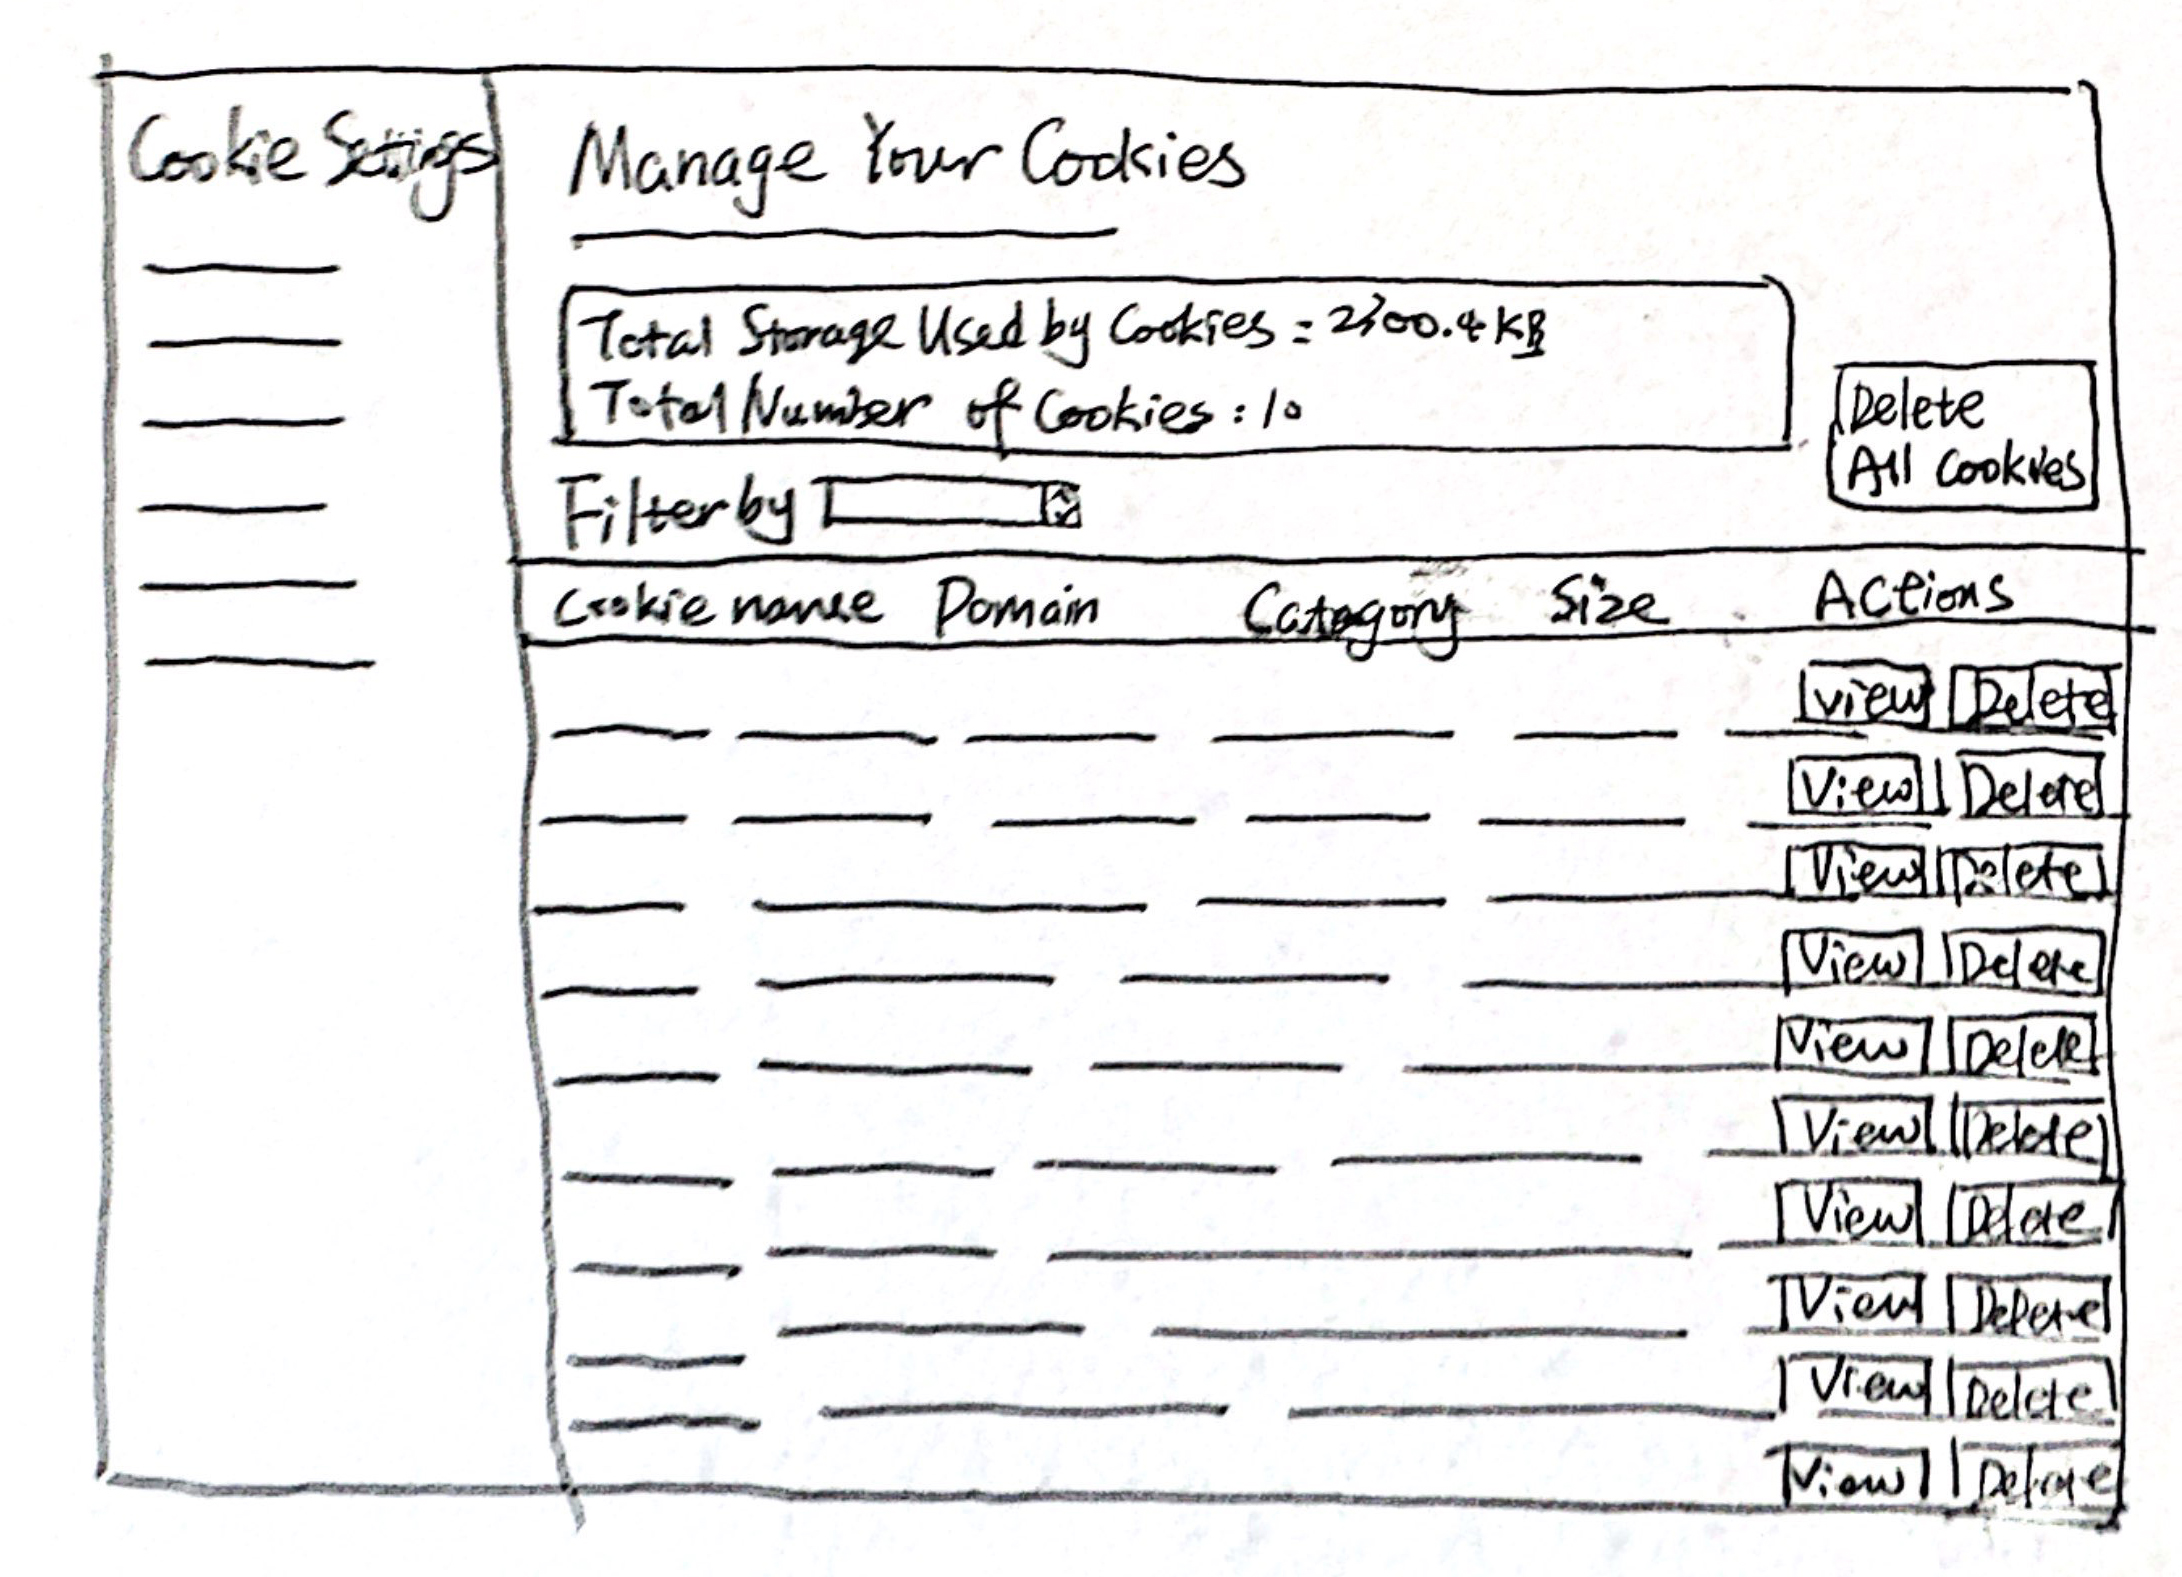 Cookie Settings
Manage Your Cookies
Total Storage Used by Cookies = KB
Total Number of Cookies : 10
Delete
All Cookies
Filter by
Cookie name Domain Category Size Actions
View Delete
View Delete
View Delete
View Delete
View Delete
View Delete
View Delete
View Delete
View Delete
View Delete